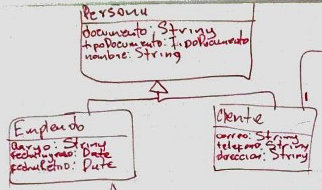 Persona
documento: String
tipoDocumento: TipoDocumento
nombre: String
Empleado
cargo: String
fechaIngreso: Date
fechaRetiro: Date
Cliente
correo: String
telefono: String
direccion: String
1